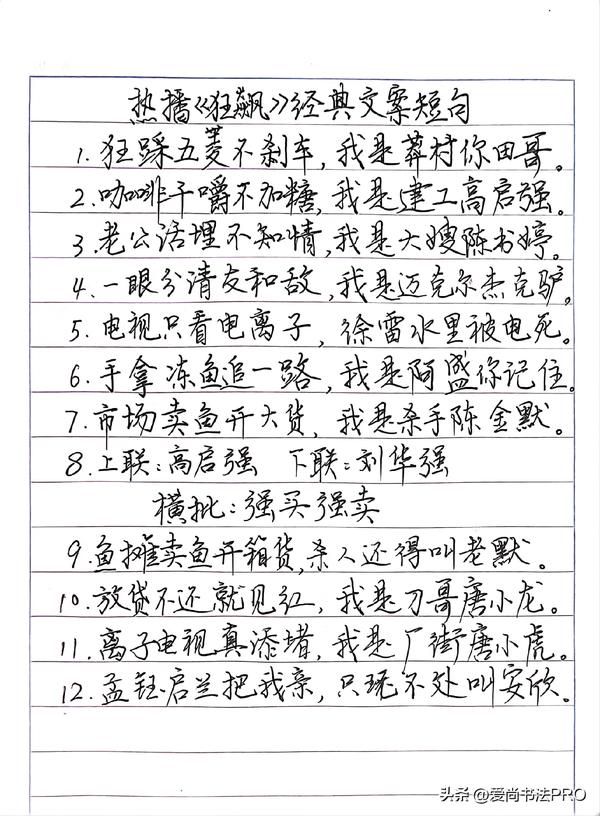 热播《狂飙》经典文案短句
1.狂踩五菱不刹车，我是莽村你田哥。
2.咖啡干嚼不加糖，我是建工高启强。
3.老公活埋不知情，我是大嫂陈书婷。
4.一眼分清友和敌，我是迈克尔杰克驴。
5.电视只看电离子，徐雷水里被电死。
6.手拿冻鱼追一路，我是阿盛你记住。
7.市场卖鱼开大货，我是杀手陈金默。
8.上联：高启强 下联：刘华强
横批：强买强卖
9.鱼摊卖鱼开箱货，杀人还得叫老默。
10.放贷不还就见红，我是刀哥唐小龙。
11.离子电视真添堵，我是厂街唐小虎。
12.孟钰启兰把我亲，只玩不处叫安欣。
头条 @爱尚书法PRO